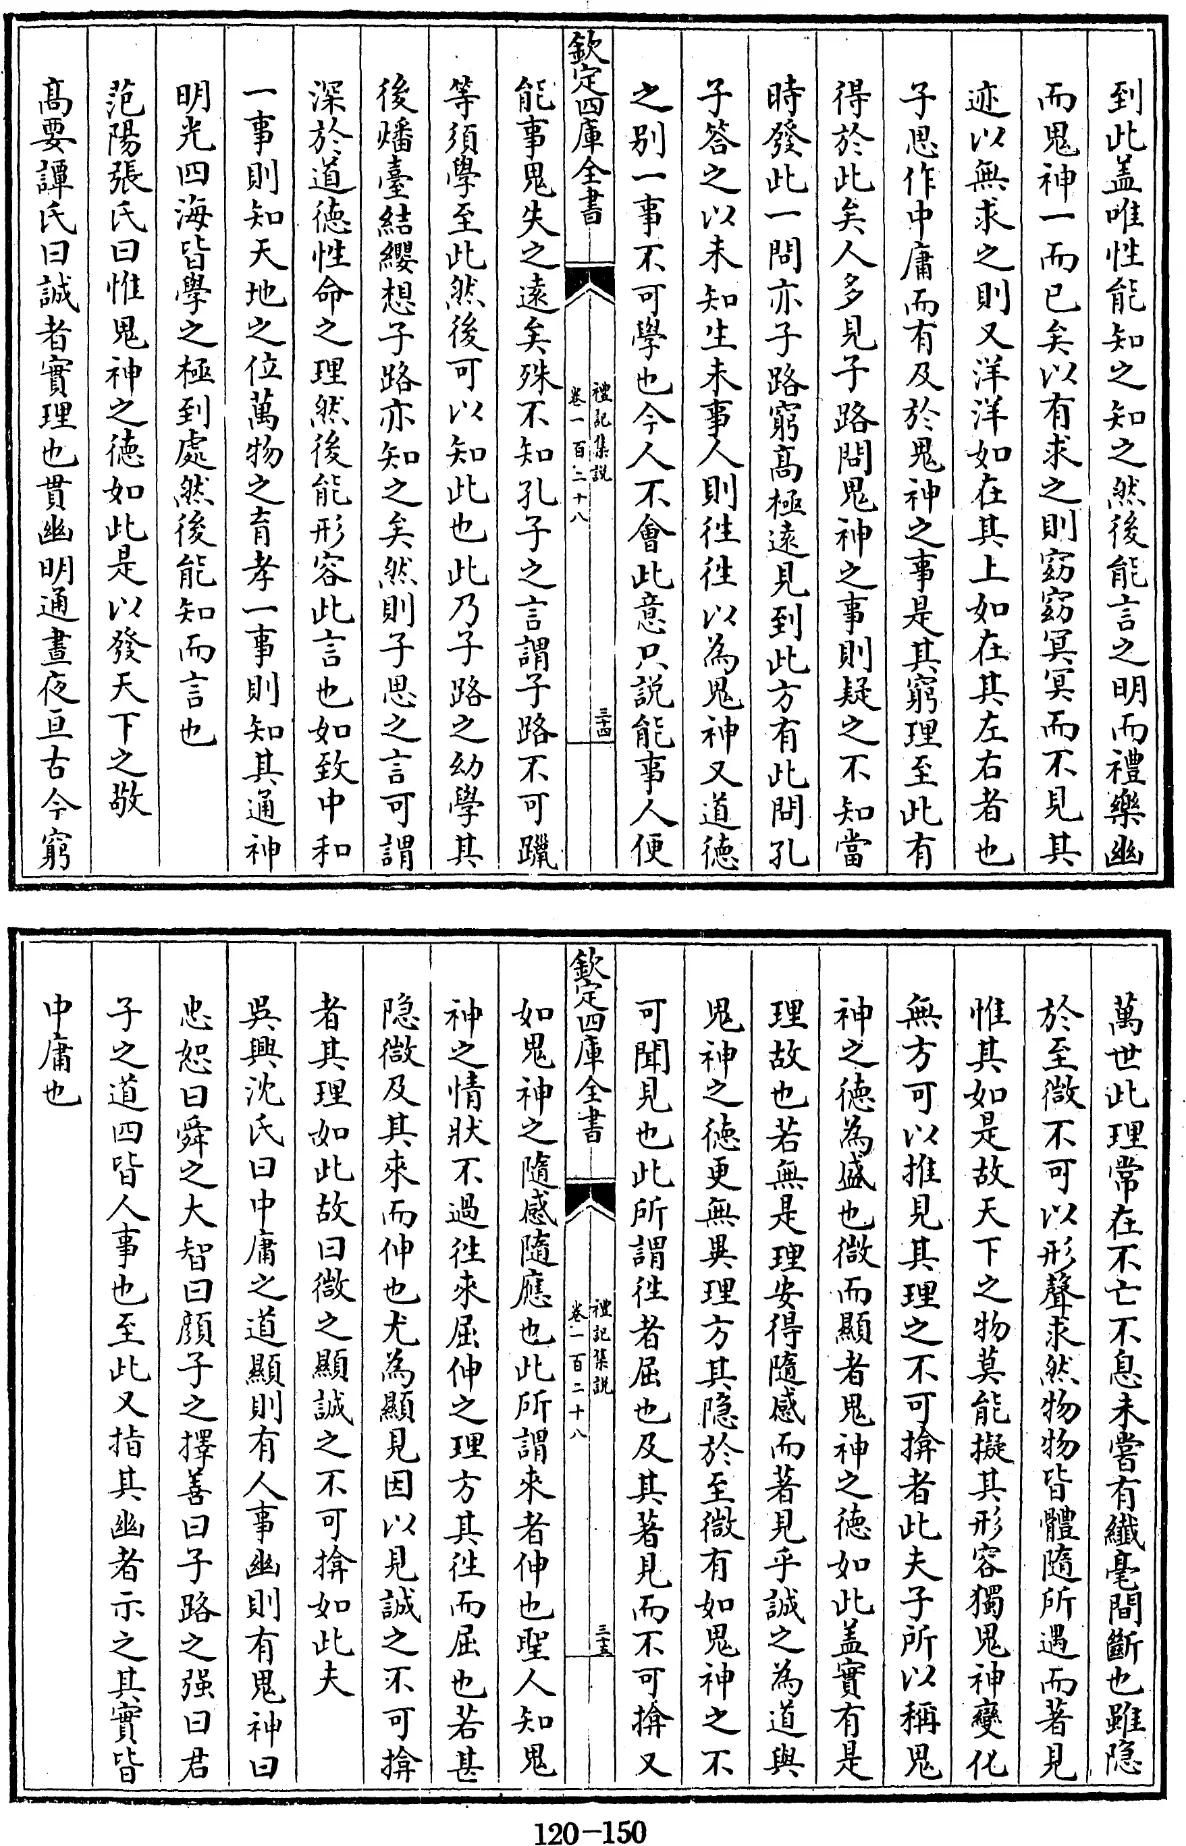 到此盖唯性能知之知之然後能言之明而禮樂幽
而鬼神一而已矣以有求之則窈窈冥冥而不見其
迹以無求之則又洋洋如在其上如在其左右者也
子思作中庸而有及於鬼神之事是其窮理至此有
得於此矣人多見子路問鬼神之事則疑之不知當
時發此一問亦子路窮高極遠見到此方有此問孔
子答之以未知生未事人則徃徃以為鬼神又道德
之别一事不可學也今人不會此意只説能事人便
欽定四庫全書
禮記集説
卷一百二十八
三十四
能事鬼失之遠矣殊不知孔子之言謂子路不可躐
等須學至此然後可以知此也此乃子路之幼學其
後燔臺結纓想子路亦知之矣然則子思之言可謂
深於道德性命之理然後能形容此言也如致中和
一事則知天地之位萬物之育孝一事則知其通神
明光四海皆學之極到處然後能知而言也
范陽張氏曰惟鬼神之德如此是以發天下之敬
高要譚氏曰誠者實理也貫幽明通晝夜亘古今窮
萬世此理常在不亡不息未嘗有纎毫間斷也雖隐
於至微不可以形聲求然物物皆體隨所遇而著見
惟其如是故天下之物莫能擬其形容獨鬼神變化
無方可以推見其理之不可揜者此夫子所以稱鬼
神之徳為盛也微而顯者鬼神之徳如此盖實有是
理故也若無是理安得隨感而著見乎誠之為道與
鬼神之徳更無異理方其隐於至微有如鬼神之不
可聞見也此所謂徃者屈也及其著見而不可揜又
欽定四庫全書
禮記集説
卷一百二十八
三十五
如鬼神之隨感隨應也此所謂來者伸也聖人知鬼
神之情狀不過徃來屈伸之理方其徃而屈也若甚
隐微及其來而伸也尤為顯見因以見誠之不可揜
者其理如此故曰微之顯誠之不可揜如此夫
吳興沈氏曰中庸之道顯則有人事幽則有鬼神曰
忠恕曰舜之大智曰顔子之擇善曰子路之强曰君
子之道四皆人事也至此又指其幽者示之其實皆
中庸也
120-150